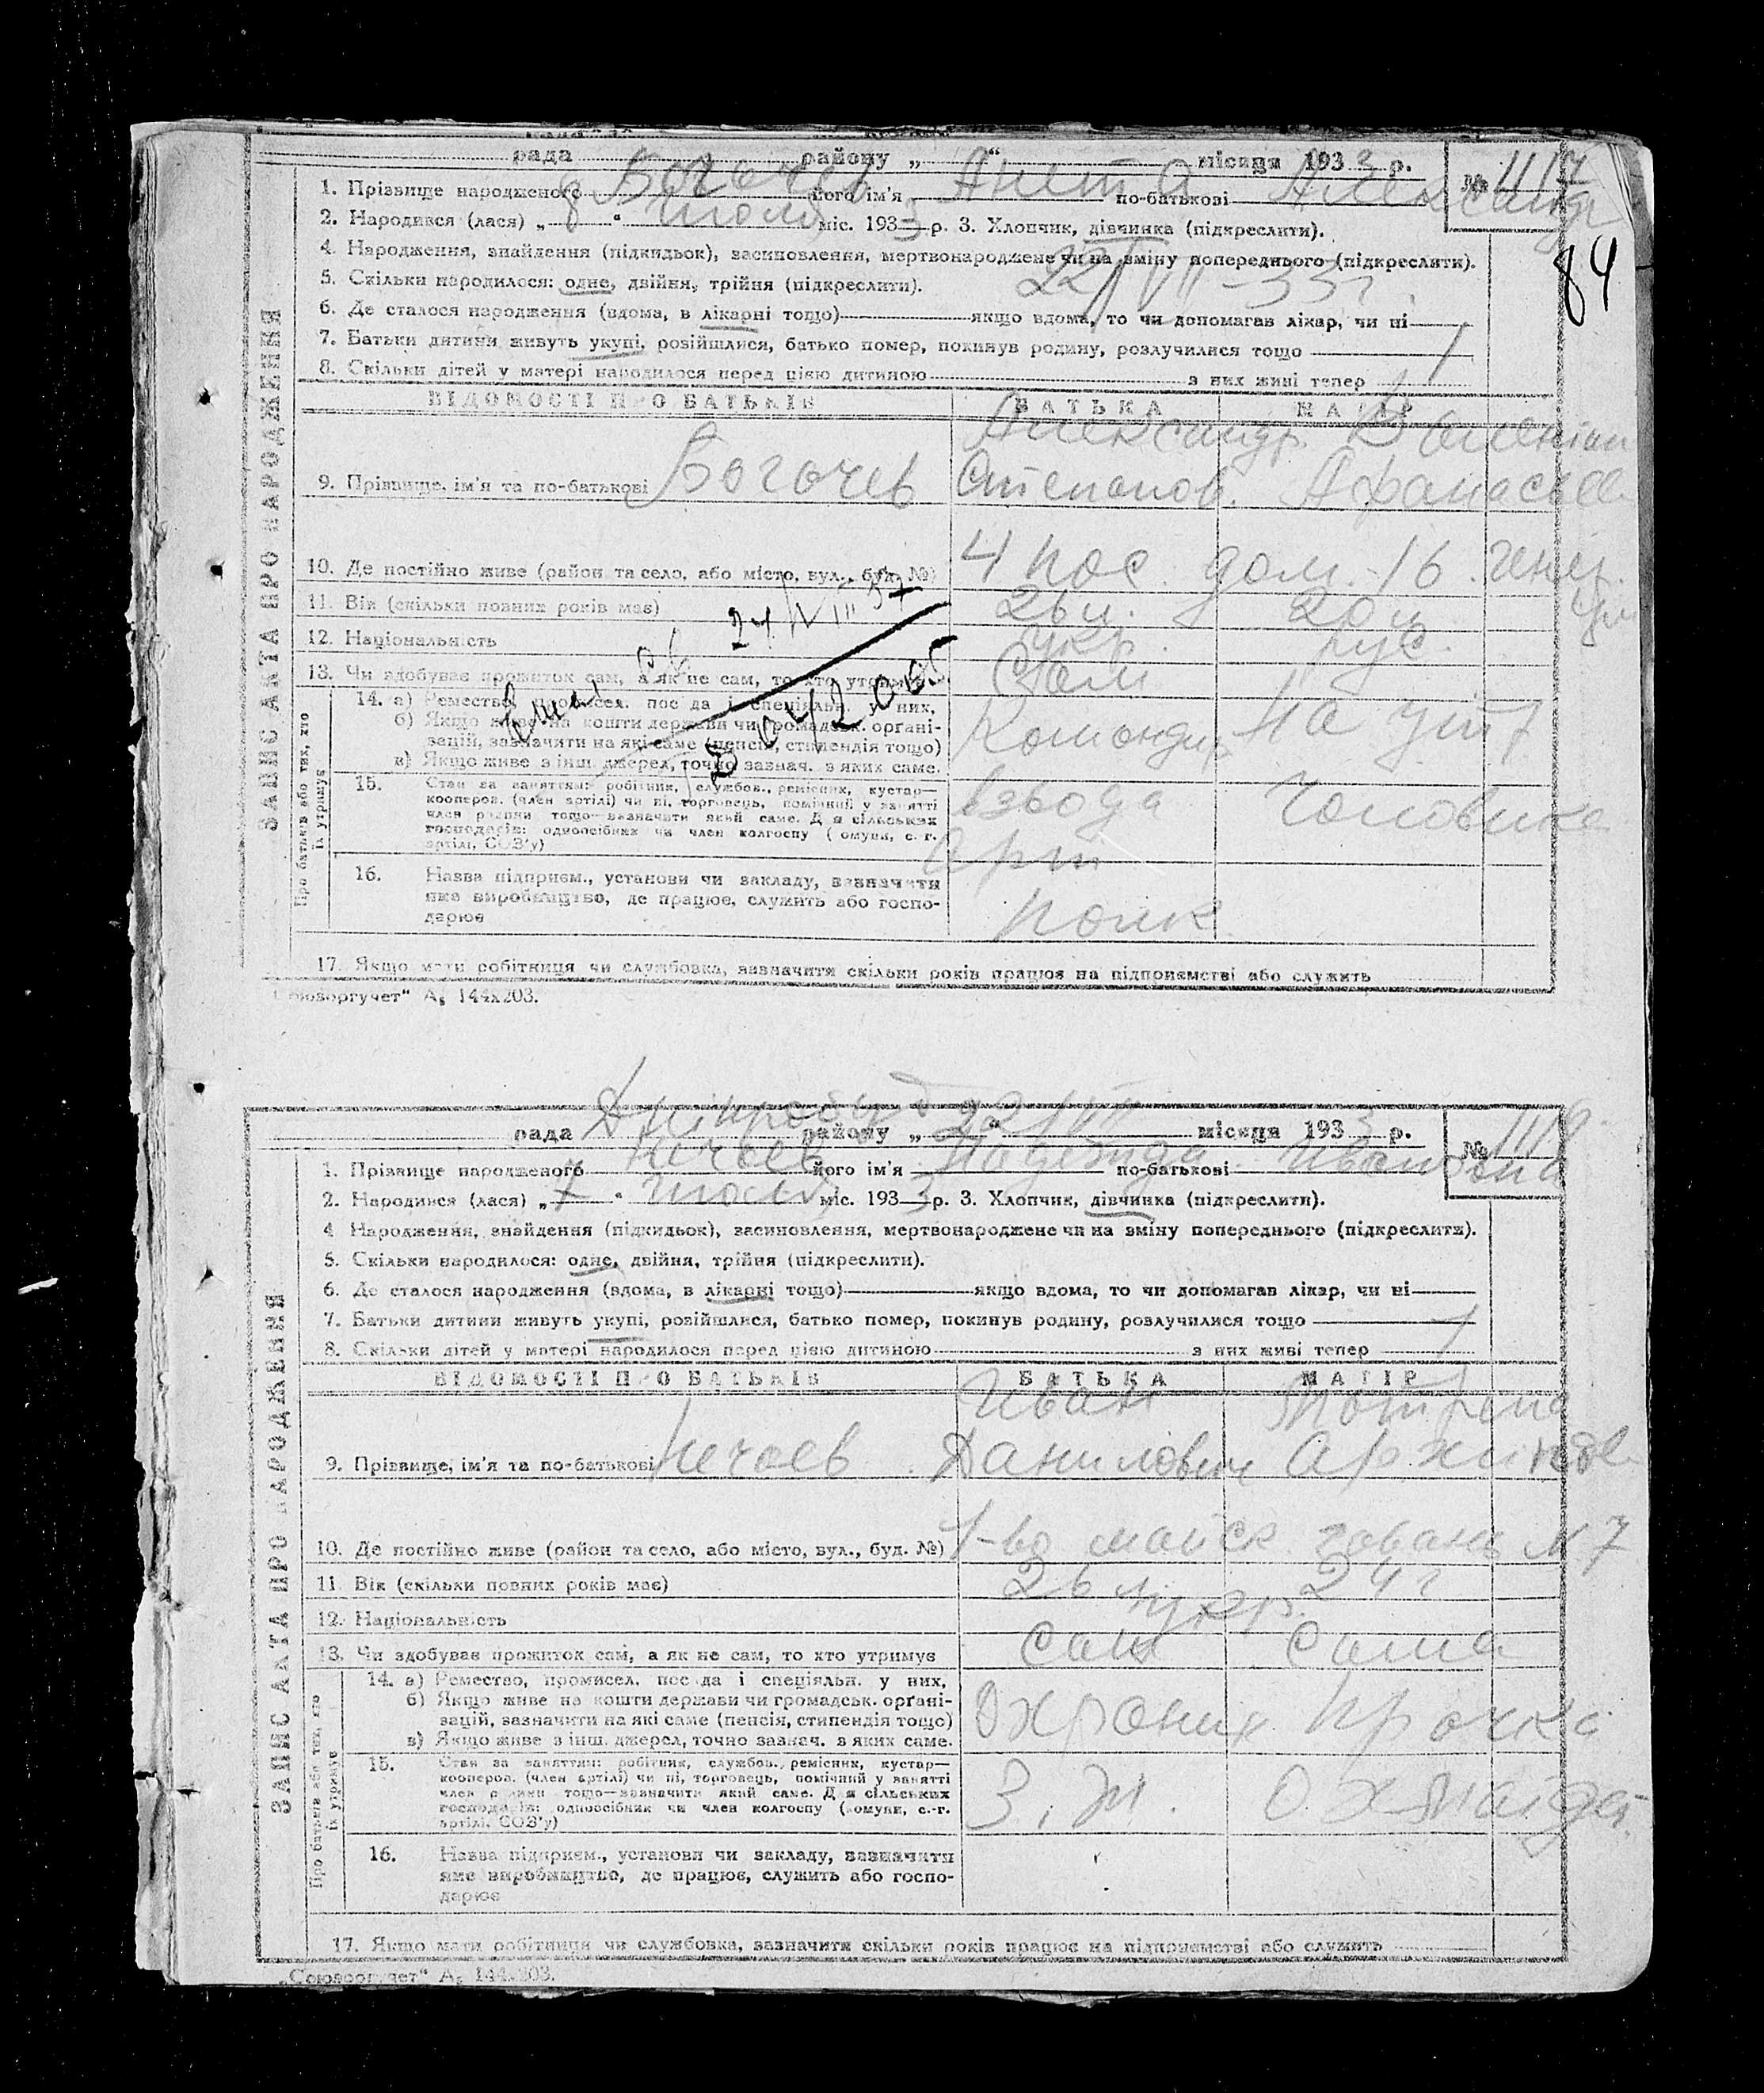 рада району „ “ місяця 1933 р.
№ 1117
1. Прізвище народженого Богачев його ім'я Анета по-батькові Александр
2. Народився (лася) „8“ июля міс. 1933 р. 3. Хлопчик, дівчинка (підкреслити).
84
4. Народження, знайдення (підкидьок), засиновлення, мертвонароджене чи на зміну попереднього (підкреслити).
22/VII-33 г.
5. Скільки народилося: одне, двійня, трійня (підкреслити).
6. Де сталося народження (вдома, в лікарні тощо) якщо вдома, то чи допомагав лікар, чи ні
7. Батьки дитини живуть укупі, розійшлися, батько помер, покинув родину, розлучилися тощо
8. Скільки дітей у матері народилося перед цією дитиною з них живі тепер 1
ВІДОМОСТІ ПРО БАТЬКІВ БАТЬКА МАТІР
Александр
9. Прізвище, ім'я та по-батькові Богачев Степанов. Афанасьев
10. Де постійно живе (район та село, або місто, вул., буд. №) 4 пос. дом. 16
11. Вік (скільки повних років має) 26 л. 20 л.
24/VIII 37
12. Національність укр. рус.
13. Чи здобуває прожиток сам, а як не сам, то хто утримує Сам
14. а) Ремество, промисел, посада і спеціяльн. у них,
б) Якщо живе на кошти держави чи громадськ. органі-
зацій, зазначити на які саме (пенсія, стипендія тощо)
Командир На ут.
в) Якщо живе з інш. джерел, точно зазнач. з яких саме.
15. Стан за заняттям: робітник, службов., ремісник, кустар—
кооперов. (член артілі) чи ні, торговець, помічний у занятті
взвода Чоловика
член родини тощо—зазначити який саме. Для сільських
господарів: одноосібник чи член колгоспу (комуни, с.-г.
артілі, СОЗ'у)
Арт
16. Назва підприєм., установи чи закладу, зазначити
яке виробництво, де працює, служить або госпо-
дарює
полк
17. Якщо мати робітниця чи службовка, зазначити скільки років працює на підприємстві або служить
„Союзоргучет“ А₅ 144х203.
ЗАПИС АКТА ПРО НАРОДЖЕННЯ
Про батьків або тих, хто
їх утримує
рада Дніпробуд району „22/VII“ місяця 1933 р.
№
1. Прізвище народженого Нечаев його ім'я Надежда по-батькові Ивановна
2. Народився (лася) „7“ июля міс. 1933 р. 3. Хлопчик, дівчинка (підкреслити).
4 Народження, знайдення (підкидьок), засиновлення, мертвонароджене чи на зміну попереднього (підкреслити).
5. Скільки народилося: одне, двійня, трійня (підкреслити).
6. Де сталося народження (вдома, в лікарні тощо) якщо вдома, то чи допомагав лікар, чи ні
7. Батьки дитини живуть укупі, розійшлися, батько помер, покинув родину, розлучилися тощо
8. Скільки дітей у матері народилося перед цією дитиною з них живі тепер 1
ВІДОМОСТІ ПРО БАТЬКІВ БАТЬКА МАТІР
Иван
9. Прізвище, ім'я та по-батькові Нечаев Данилович
10. Де постійно живе (район та село, або місто, вул., буд. №) 1-во майск. N 7
11. Вік (скільки повних років має) 26 24 г
12. Національність укр.
13. Чи здобуває прожиток сам, а як не сам, то хто утримує Сам Сама
14. а) Ремество, промисел, посада і спеціяльн. у них,
б) Якщо живе на кошти держави чи громадськ. органі-
зацій, зазначити на які саме (пенсія, стипендія тощо)
Охраник Прачка
в) Якщо живе з інш. джерел, точно зазнач. з яких саме.
15. Стан за заняттям: робітник, службов., ремісник, кустар—
кооперов. (член артілі) чи ні, торговець, помічний у занятті
член родини тощо—зазначити який саме. Для сільських
господарів: одноосібник чи член колгоспу (комуни, с.-г.
артілі, СОЗ'у)
16. Назва підприєм., установи чи закладу, зазначити
яке виробництво, де працює, служить або госпо-
дарює
17. Якщо мати робітниця чи службовка, зазначити скільки років працює на підприємстві або служить
„Союзоргучет“ А₅ 144х203.
ЗАПИС АКТА ПРО НАРОДЖЕННЯ
Про батьків або тих, хто
їх утримує